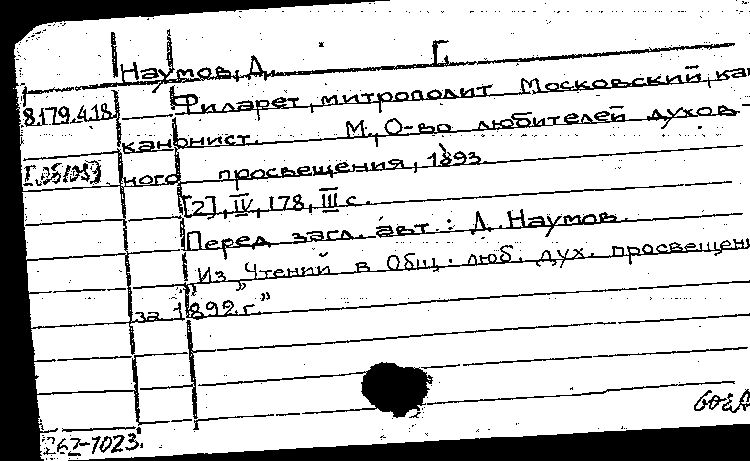 Г.
Наумов, Д.
8.179.4.18. Филарет, митрополит Московский, ка
канонист. М., О-во любителей духов-
ного просвещения, 1893
[2], IV, 178, III с.
Перед загл. авт.: Д. Наумов.
"Из „Чтений в Общ. люб. дух. просвещен
за 1892.г."
262-7023.